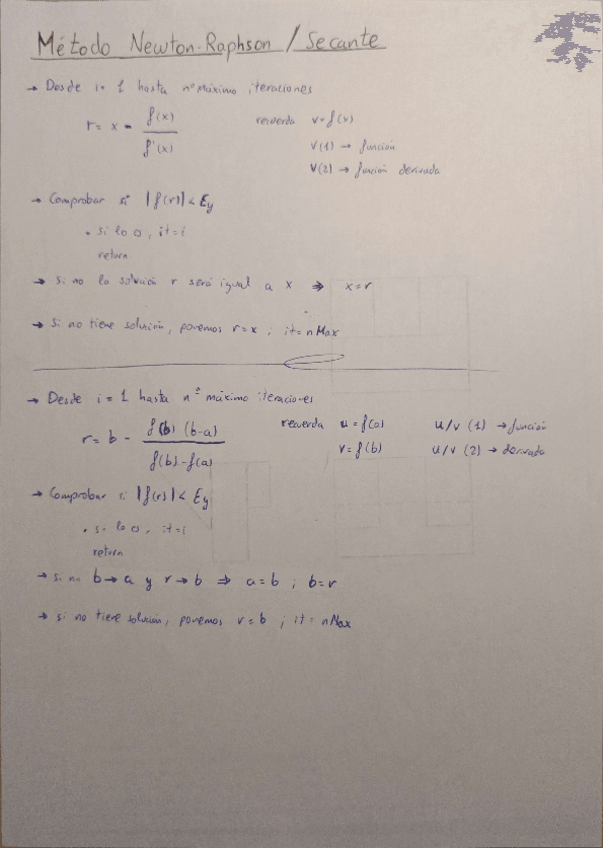 Método Newton-Raphson / Secante
→ Desde i = 1 hasta nº máximo iteraciones
r = x - f(x) / f'(x)
recuerda v = f(x)
v(1) → función
v(2) → función derivada
→ Comprobar si |f(r)| < Ey
• si lo es, it = i
return
→ Si no la solución r será igual a x ⇒ x = r
→ Si no tiene solución, ponemos r = x ; it = nMax
→ Desde i = 1 hasta nº máximo iteraciones
r = b - f(b) (b-a) / f(b) - f(a)
recuerda u = f(a) u/v (1) → función
v = f(b) u/v (2) → derivada
→ Comprobar si |f(r)| < Ey
• si lo es, it = i
return
→ si no b → a y r → b ⇒ a = b ; b = r
→ si no tiene solución, ponemos r = b ; it = nMax